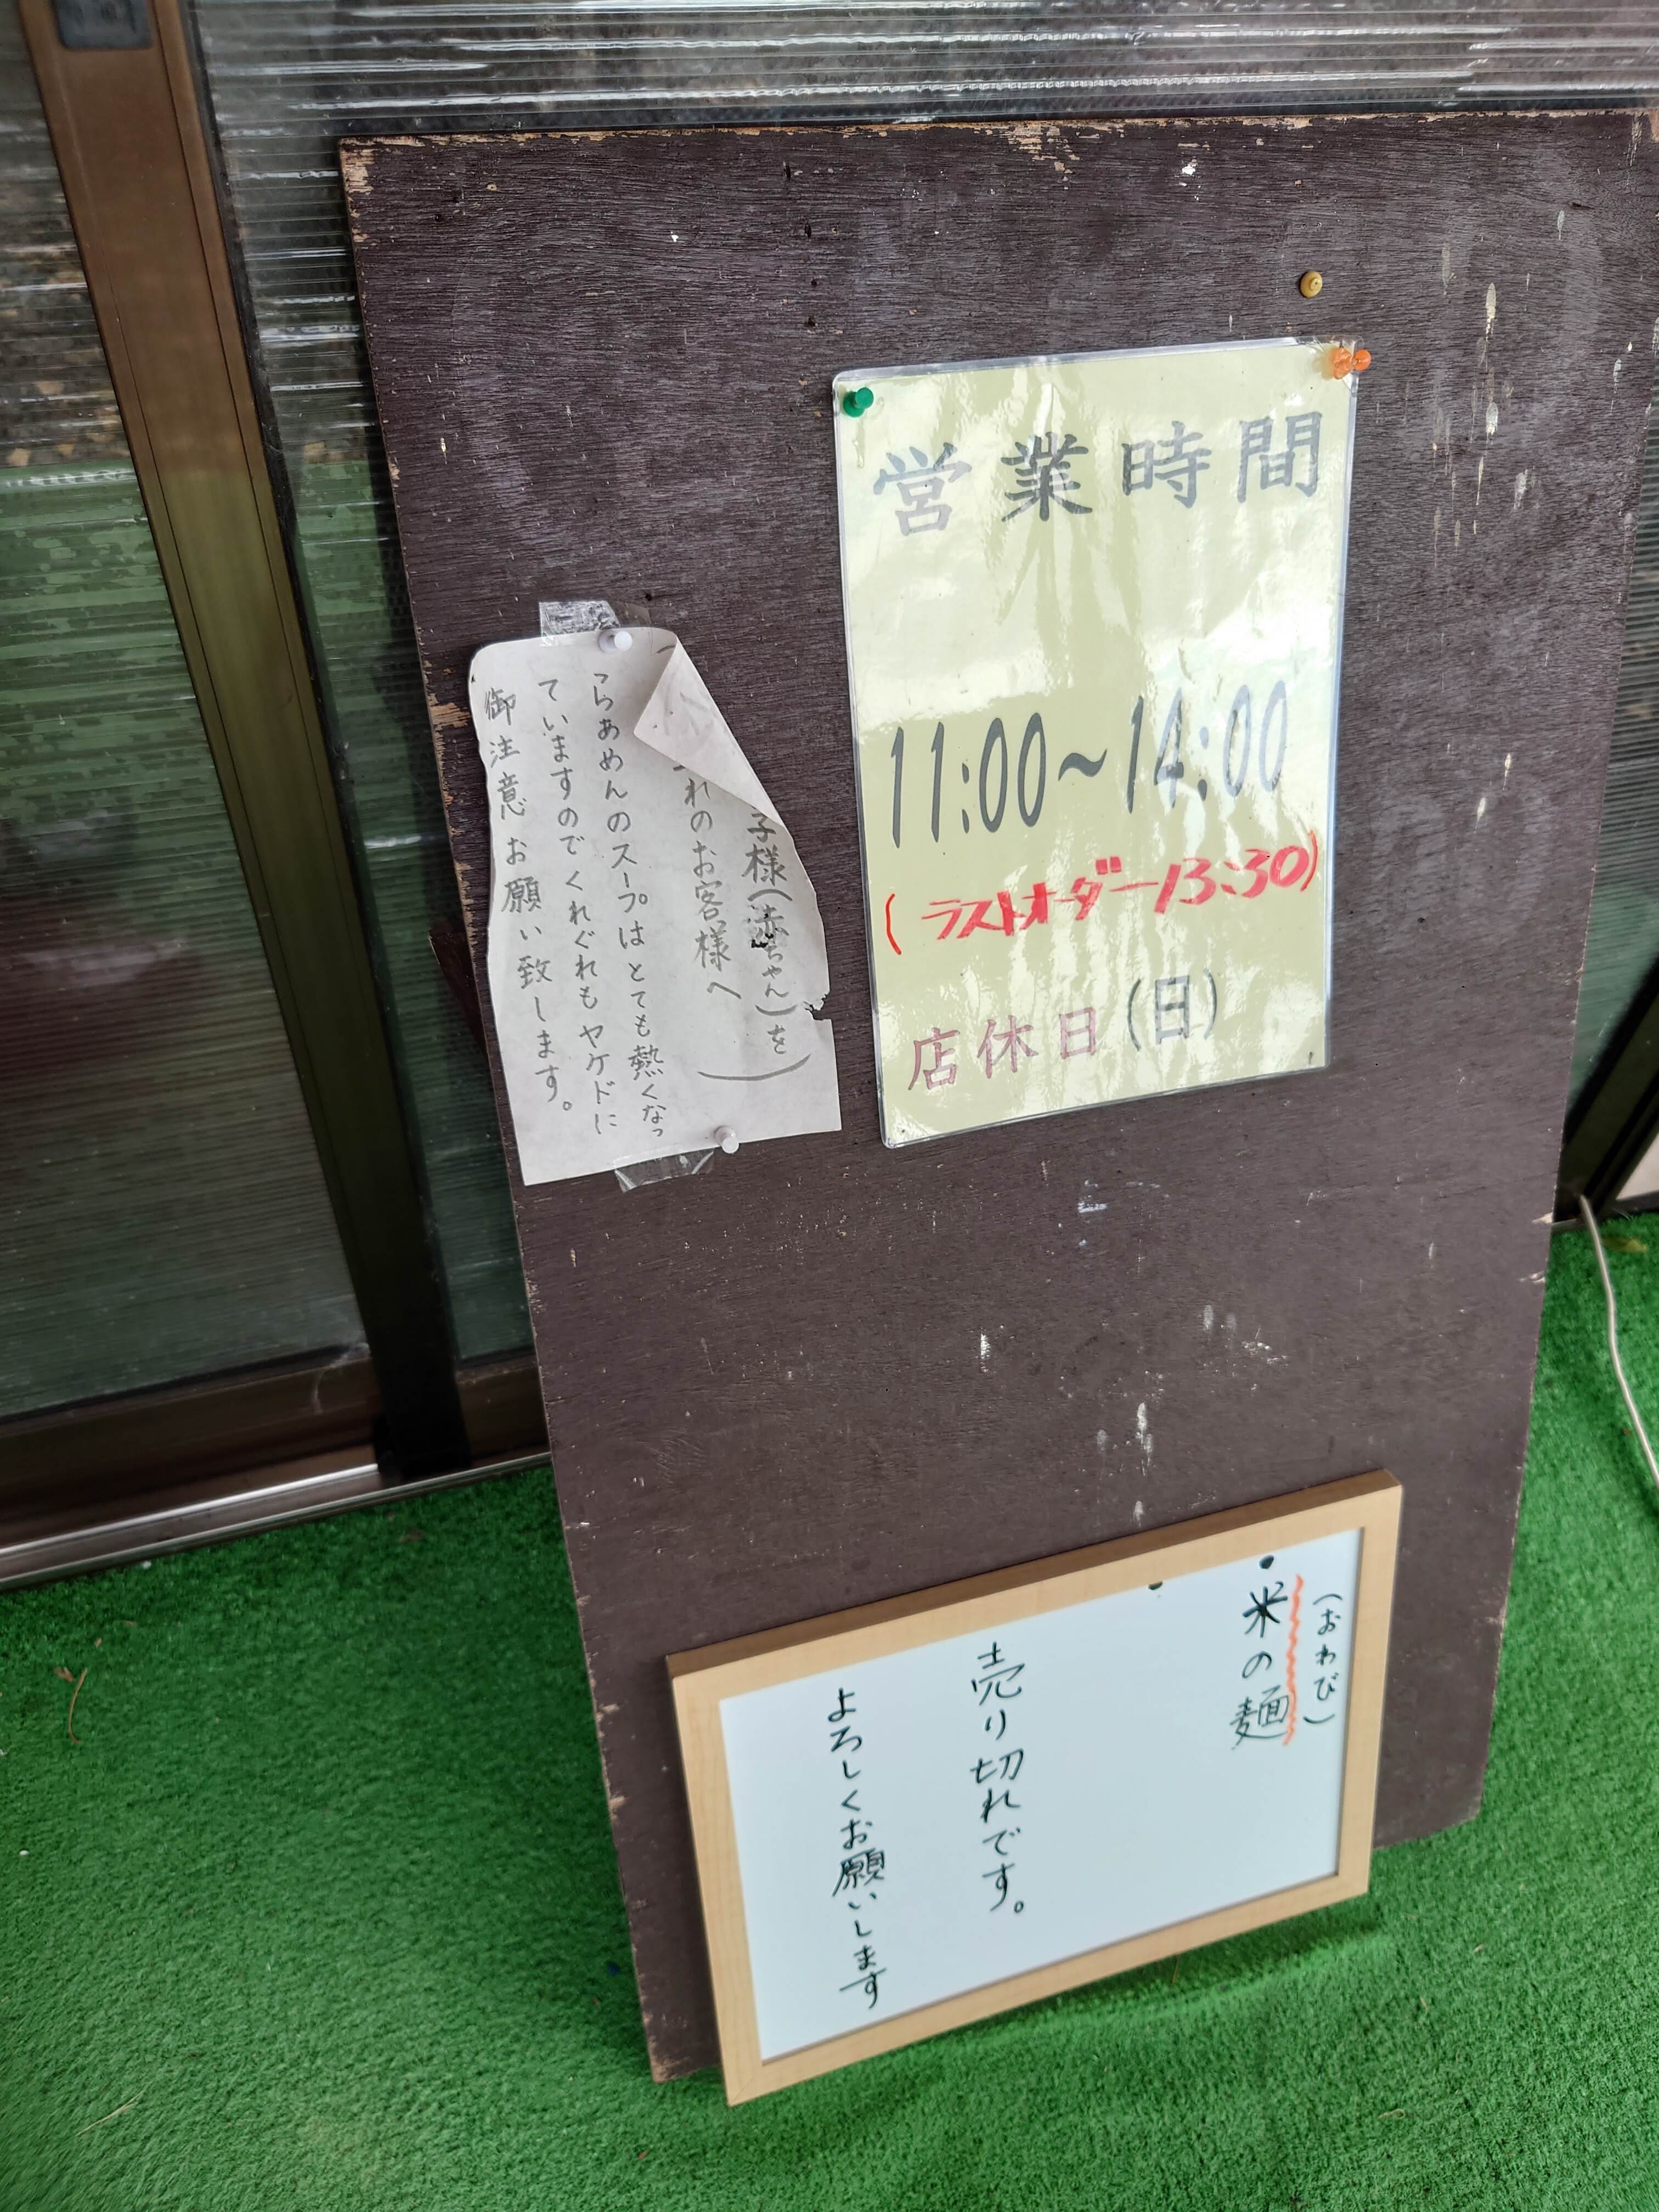 営業時間
11:00～14:00
(ラストオーダー13:30)
店休日(日)
子様(赤ちゃん)を
れのお客様へ
らあめんのスープはとても熱くなっ
ていますのでくれぐれもヤケドに
御注意お願い致します。
(おわび)
・米の麺
売り切れです。
よろしくお願いします